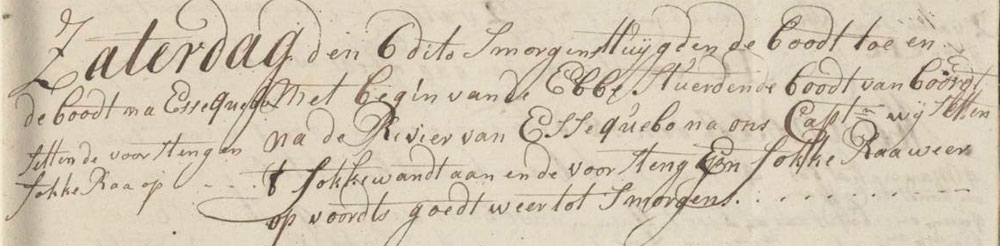 Zaterdag den 6 dito Smorgens tuijgden de boodt toe en
de boodt na Essequebo
setten de voor stengen
fokke Raa op
Met begin van de Ebbe stuerden de boodt van boordt
na de Rivier van Essequebo na ons Captn wij setten
t fokkewandt aan en de voor steng En fokke Raa weer
op voordts goedt weer tot Smorgens